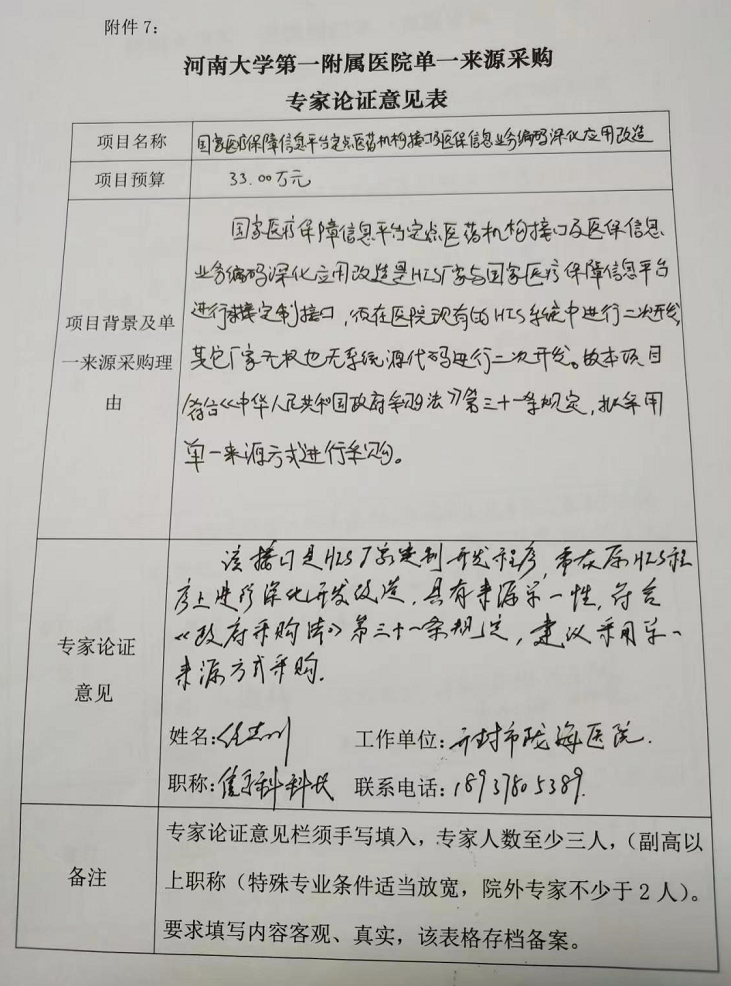 附件 7：
河南大学第一附属医院单一来源采购
专家论证意见表
项目名称
国家医疗保障信息平台定点医药机构接口及医保信息业务编码深化应用改造
项目预算
33.00万元
项目背景及单
一来源采购理
由
国家医疗保障信息平台定点医药机构接口及医保信息
业务编码深化应用改造是HIS厂家与国家医疗保障信息平台
进行对接定制接口，须在医院现有的HIS系统中进行二次开发，
其它厂家无权也无系统源代码进行二次开发。故本项目
符合《中华人民共和国政府采购法》第三十一条规定，拟采用
单一来源方式进行采购。
专家论证
意见
该接口是HIS厂家定制开发程序，需在原HIS程
序上进行深化开发改造，具有来源单一性，符合
《政府采购法》第三十一条规定，建议采用单一
来源方式采购.
姓名：任志川 工作单位：开封市陇海医院.
职称：信息科科长 联系电话：18937805389.
备注
专家论证意见栏须手写填入，专家人数至少三人，（副高以
上职称（特殊专业条件适当放宽，院外专家不少于 2 人）。
要求填写内容客观、真实，该表格存档备案。